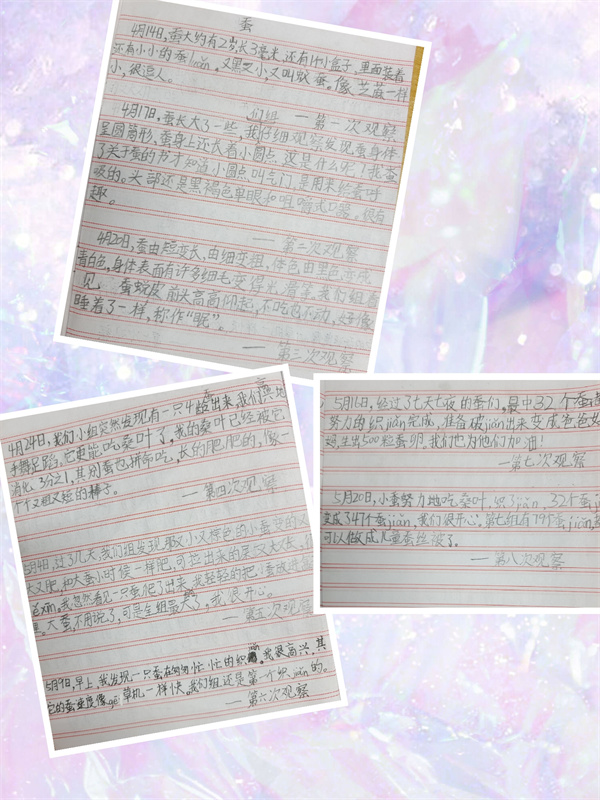 蚕
4月14日,蚕大约有2岁,长3毫米,还有1个小盒子,里面装着
还有小小的蚕luǎn。又黑又小,又叫蚁蚕。像芝麻一样
小,很追人。
一第一次观察
4月17日,蚕长大了一些,我仔细观察发现蚕身体
呈圆筒形,蚕身上还大着小圆点,这是什么呢?我查
了关于蚕的方才知道小圆点叫气门,是用来给蚕呼
吸的。头部还是黑褐色单眼和咀嚼式口器。很有
趣。
一第二次观察
4月20日,蚕由短变长,由细变粗,体色由黑色变成
青白色,身体表面有许多细毛变得光滑等。我们组看
见 蚕蜕皮前头高高仰起,不吃也不动,好像
睡着了一样,称作“眠”。
一第三次观察
4月24日,我们小组突然发现有一只蚕出来,我们高兴地
手舞足蹈。它也能吃桑叶了,我的桑叶已经被它
消化3分之1,其别蚕也拼命吃,长的肥肥的,像一
个个又粗又短的棒子。
一第四次观察
过了几天,我们组发现那又小又棕色的小蚕变的又
大又肥,和大蚕小时侯一样肥,可拉出来的屎又大又
我忽然看见一只蚕爬了出来,我轻轻的把小蚕放进
大蚕,不用说了,可是全组第大了。我很开心。
一第五次观察
5月9日,早上,我发现一只蚕在匆匆忙忙的织jiǎn。我很高兴,其
它的蚕速度像gē草机一样快。我们组还是第一个织jiǎn的。
一第六次观察
5月16日,经过了七天七夜的蚕们,最中32个蚕
努力的织jiǎn完成,准备破jiǎn出来变成爸爸
妈,生出500粒蚕卵。我们也为他们加油!
一第七次观察
5月20日,小蚕努力地吃桑叶,织了jiǎn,32个蚕
变成了47个蚕jiǎn,我们很开心。第七组有79个蚕jiǎn
可以做成儿童蚕丝被了。
一第八次观察